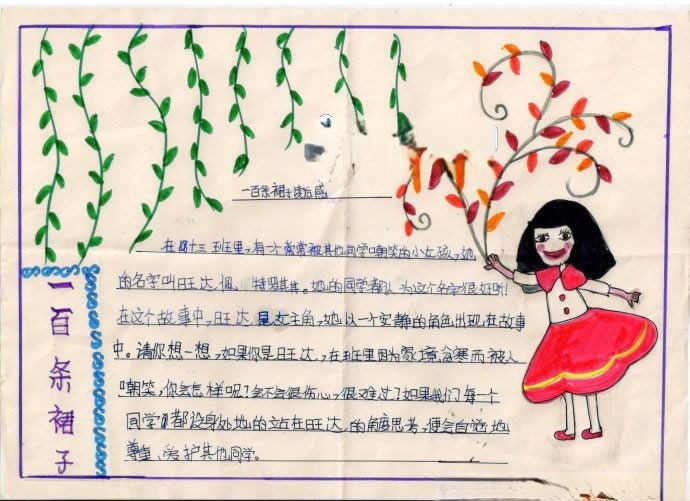 一百条裙子读后感
在四十三班里,有一个常常被其他同学嘲笑的小女孩,她
的名字叫旺达.佩 特罗其其。她的同学都认为这个名字很好听!
在这个故事中,旺达是女主角,她以一个安静的角色出现在故事
中。请你想一想,如果你是旺达,在班里因为家境贫寒而被人
嘲笑,你会怎样呢?会不会很伤心,很难过?如果我们每一个
同学都设身处地的站在旺达的角度思考,便会自觉地
尊重、爱护其他同学。
一百条裙子